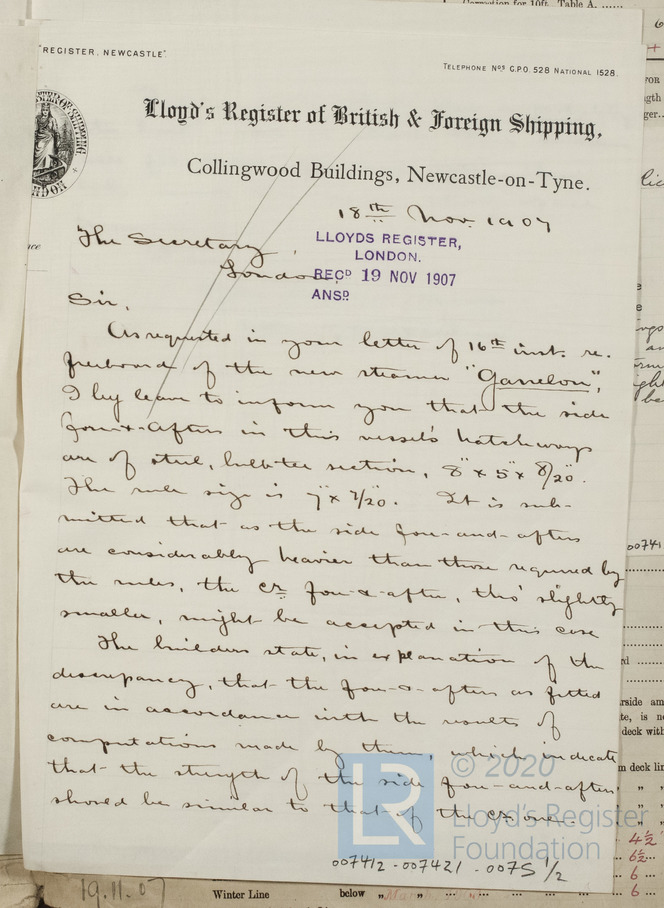 Correction for 10ft. Table A. ......
"REGISTER, NEWCASTLE".
TELEPHONE Nos G.P.O. 528 NATIONAL 1528.
Lloyd's Register of British & Foreign Shipping,
Collingwood Buildings, Newcastle-on-Tyne.
18th Nov. 1907
The Secretary,
London
LLOYDS REGISTER,
LONDON.
RECD 19 NOV 1907
ANSD
Sir,
As requested in your letter of 16th inst. re.
freeboard of the new steamer "Ganelon",
I beg leave to inform you that the side
fore-&-afters in this vessel's hatchways
are of steel, bulb-tee section, 8" x 5" x 8/20".
The rule size is 7" x 7/20. It is sub-
mitted that as the side fore-and-afters
are considerably heavier than those required by
the rules, the cr fore-&-after, tho' slightly
smaller, might be accepted in this case
The builders state, in explanation of the
discrepancy, that the fore-&-afters as fitted
are in accordance with the results of
computations made by them, which indicate
that the strength of the side fore-and-afters
should be similar to that of the cr one.
© 2020
LR
Lloyd's Register
Foundation
007412-007421-0075 1/2
19.11.07
Winter Line below „